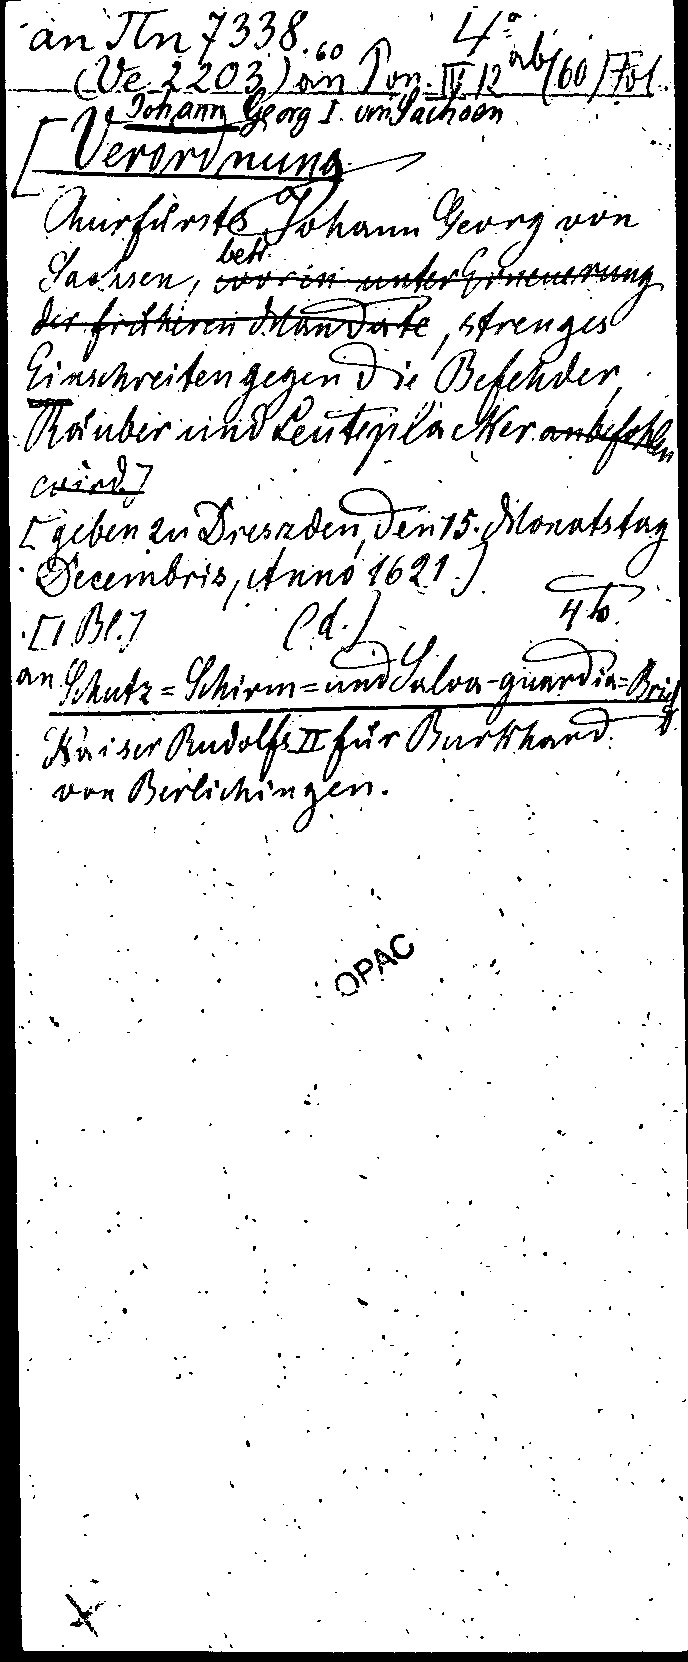 an IIn 7338. 4°
(Ve 2203) an Pon. IV 12 ab (60) Fol.
Johann Georg I. von Sachsen
[Verordnung
Kurfürsts Johann Georg von
Sachsen, betr. worin unter Erneuerung
der früheren Mandate, strenges
Einschreiten gegen die Befehder,
Räuber und Leuteplacker anbefohlen
wird.]
[geben zu Dreszden, den 15. Monatstag
Decembris, Anno 1621.]
[1 Bl.] (d.) 4to.
an Schutz=Schirm=und Salva-guardia=Brief
Kaiser Rudolfs II für Burkhard
von Berlichingen.
OPAC